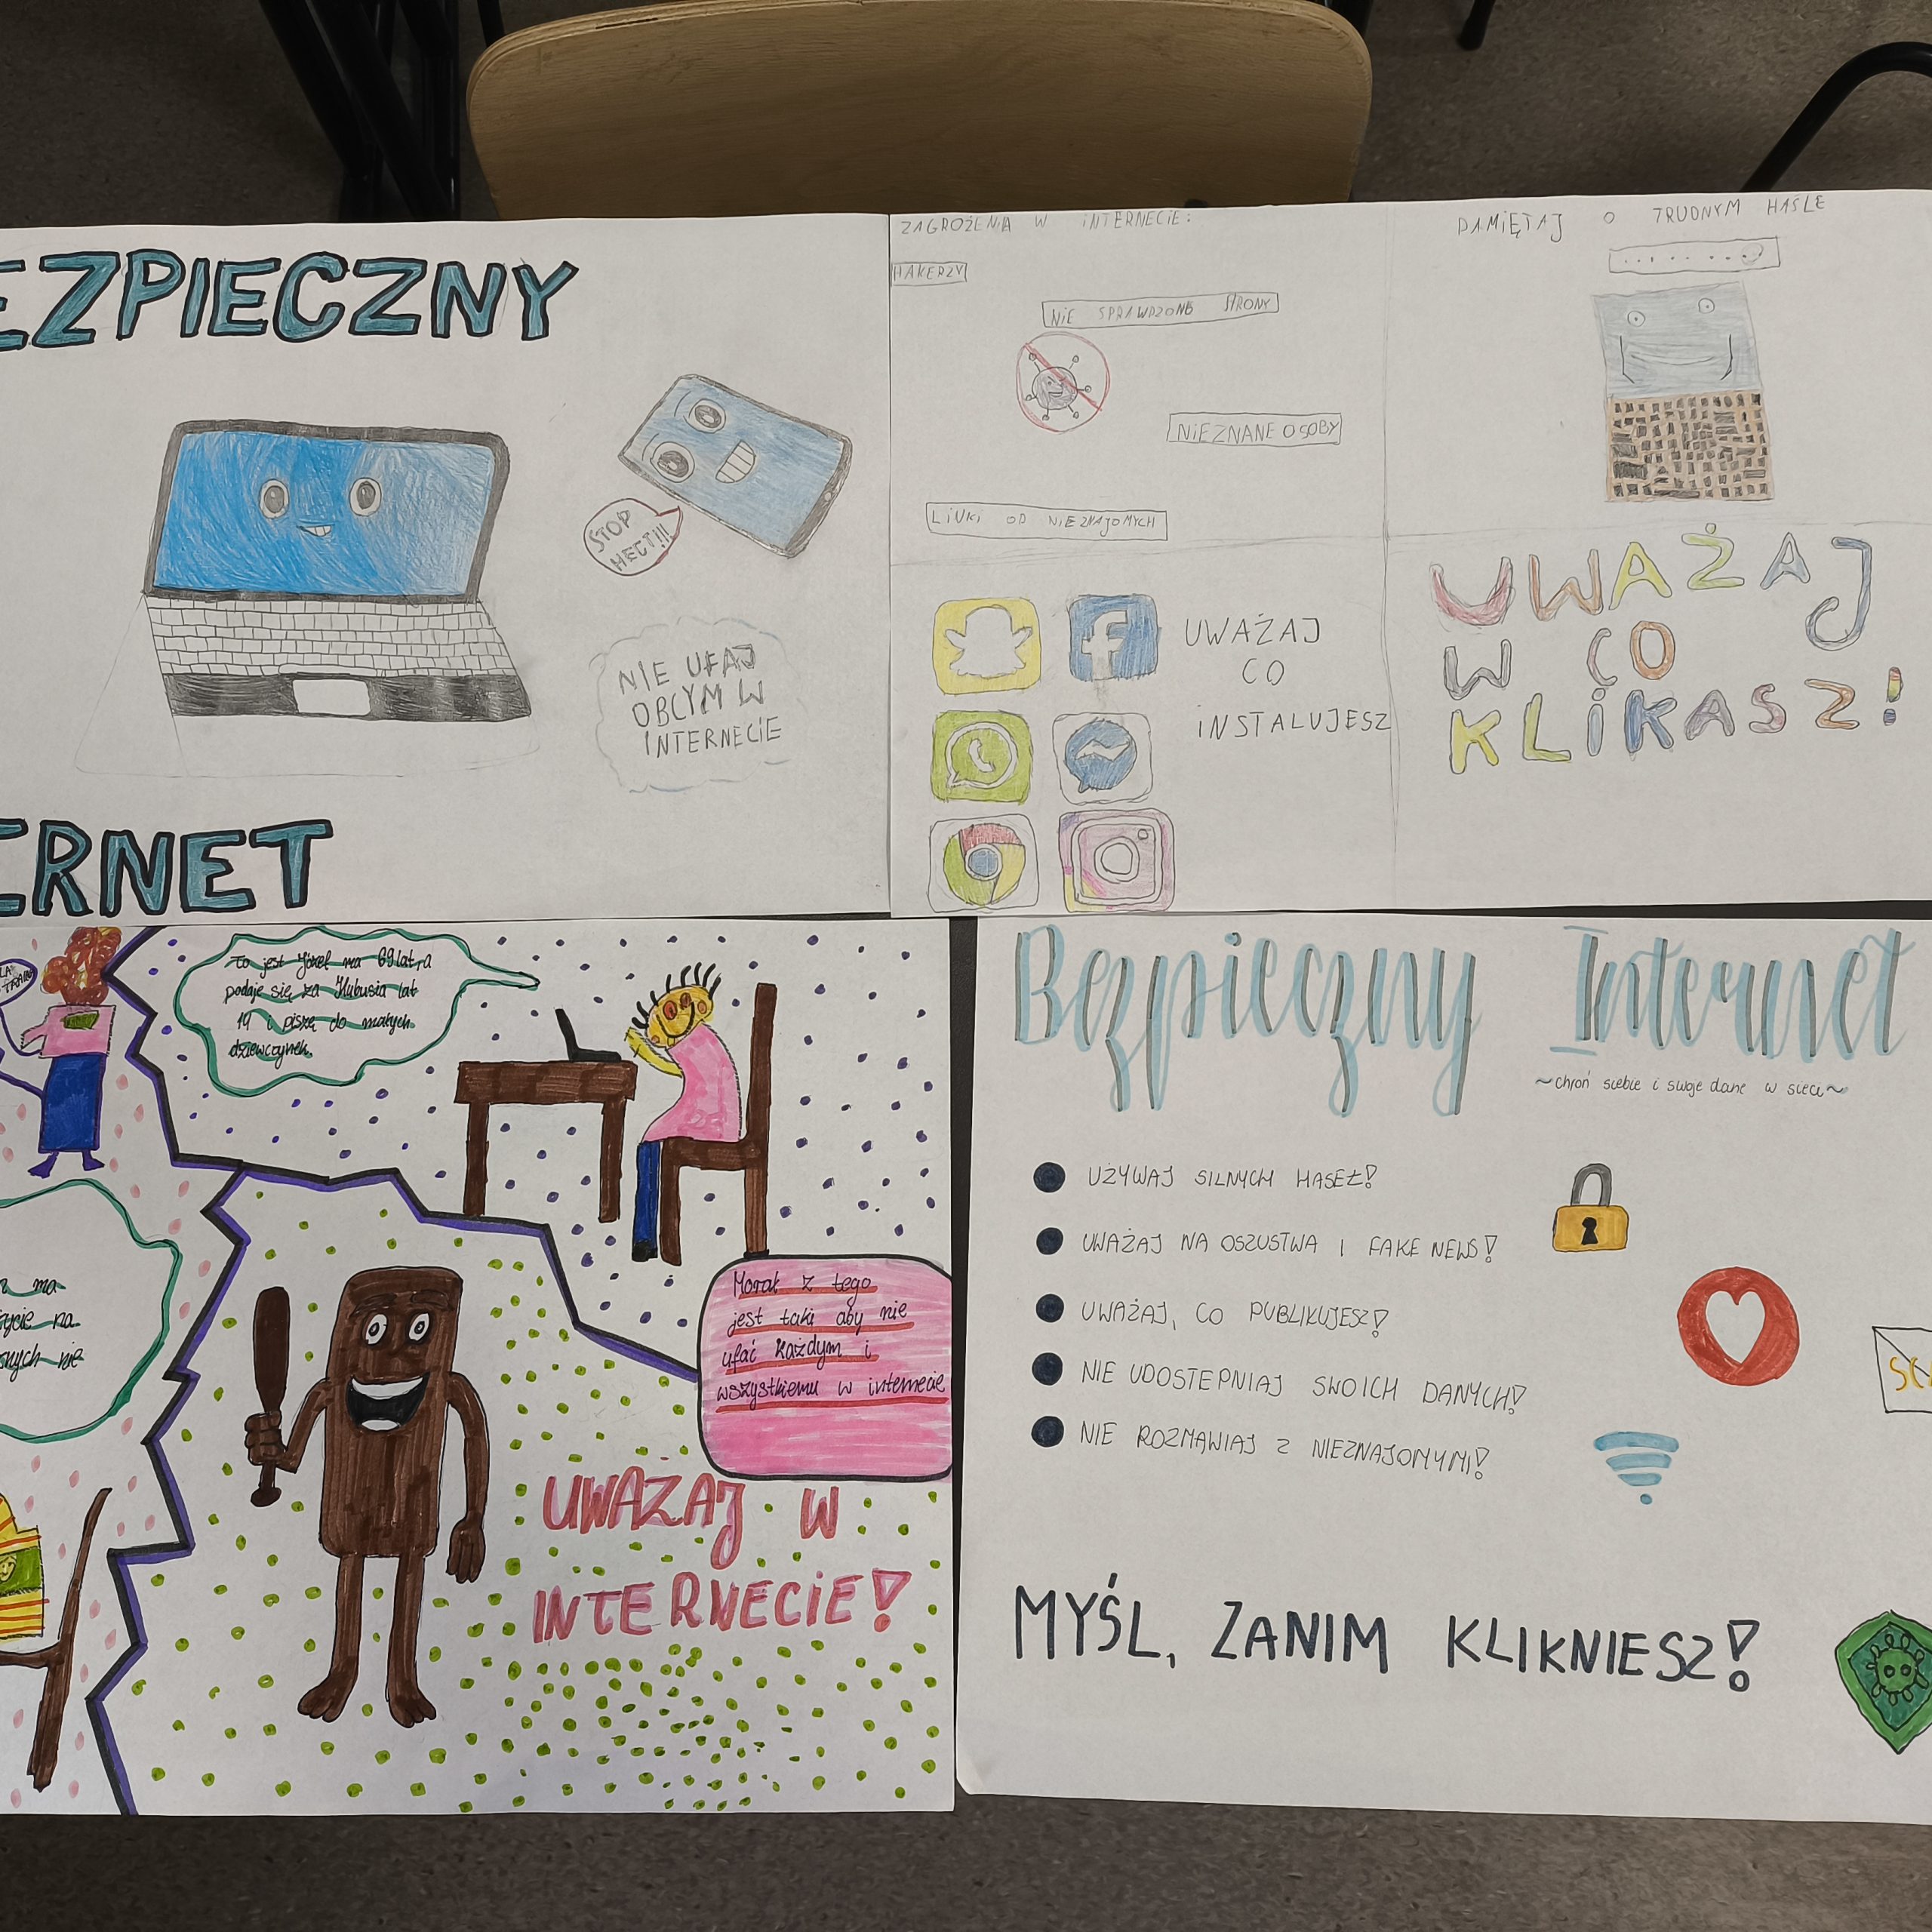 EZPIECZNY
STOP
HECT!!!
NIE UFAJ
OBCYM W
INTERNECIE
ERNET
ZAGROŻENIA W INTERNECIE:
HAKERZY
NIE SPRAWDZONE STRONY
NIEZNANE OSOBY
LINKI OD NIEZNAJOMYCH
PAMIĘTAJ O TRUDNYM HAŚLE
UWAŻAJ
CO
INSTALUJESZ
UWAŻAJ
W CO
KLIKASZ!
To jest Józef ma 69 lat, a
podaje się za Kubusia lat
14 i pisze do małych
dziewczynek.
ma
życie na
nych nie
Morał z tego
jest taki aby nie
ufać każdym i
wszystkiemu w internecie
UWAŻAJ W
INTERNECIE!
Bezpieczny Internet
~chroń siebie i swoje dane w sieci~
UŻYWAJ SILNYCH HASEŁ!
UWAŻAJ NA OSZUSTWA I FAKE NEWS!
UWAŻAJ, CO PUBLIKUJESZ!
NIE UDOSTEPNIAJ SWOICH DANYCH!
NIE ROZMAWIAJ Z NIEZNAJOMYMI!
SC
MYŚL, ZANIM KLIKNIESZ!